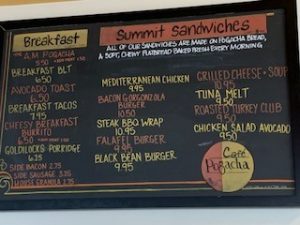 Breakfast
A.M. POGACHA
BREAKFAST BLT
6.50
AVOCADO TOAST
6.50
BREAKFAST TACOS
7.95
CHEESY BREAKFAST
BURRITO
6.50
GOLDILOCKS PORRIDGE
6.25
SIDE BACON 2.75
SIDE SAUSAGE 3.25
HOUSE GRANOLA 2.75
Summit Sandwiches
ALL OF OUR SANDWICHES ARE MADE ON POGACHA BREAD,
A SOFT, CHEWY FLATBREAD BAKED FRESH EVERY MORNING
MEDITERRANEAN CHICKEN
9.95
BACON GORGONZOLA
BURGER
10.50
STEAK BBQ WRAP
10.95
FALAFEL BURGER
9.95
BLACK BEAN BURGER
9.95
GRILLED CHEESE + SOUP
10.95
TUNA MELT
9.50
ROASTED TURKEY CLUB
9.50
CHICKEN SALAD AVOCADO
9.50
Café
Pogacha